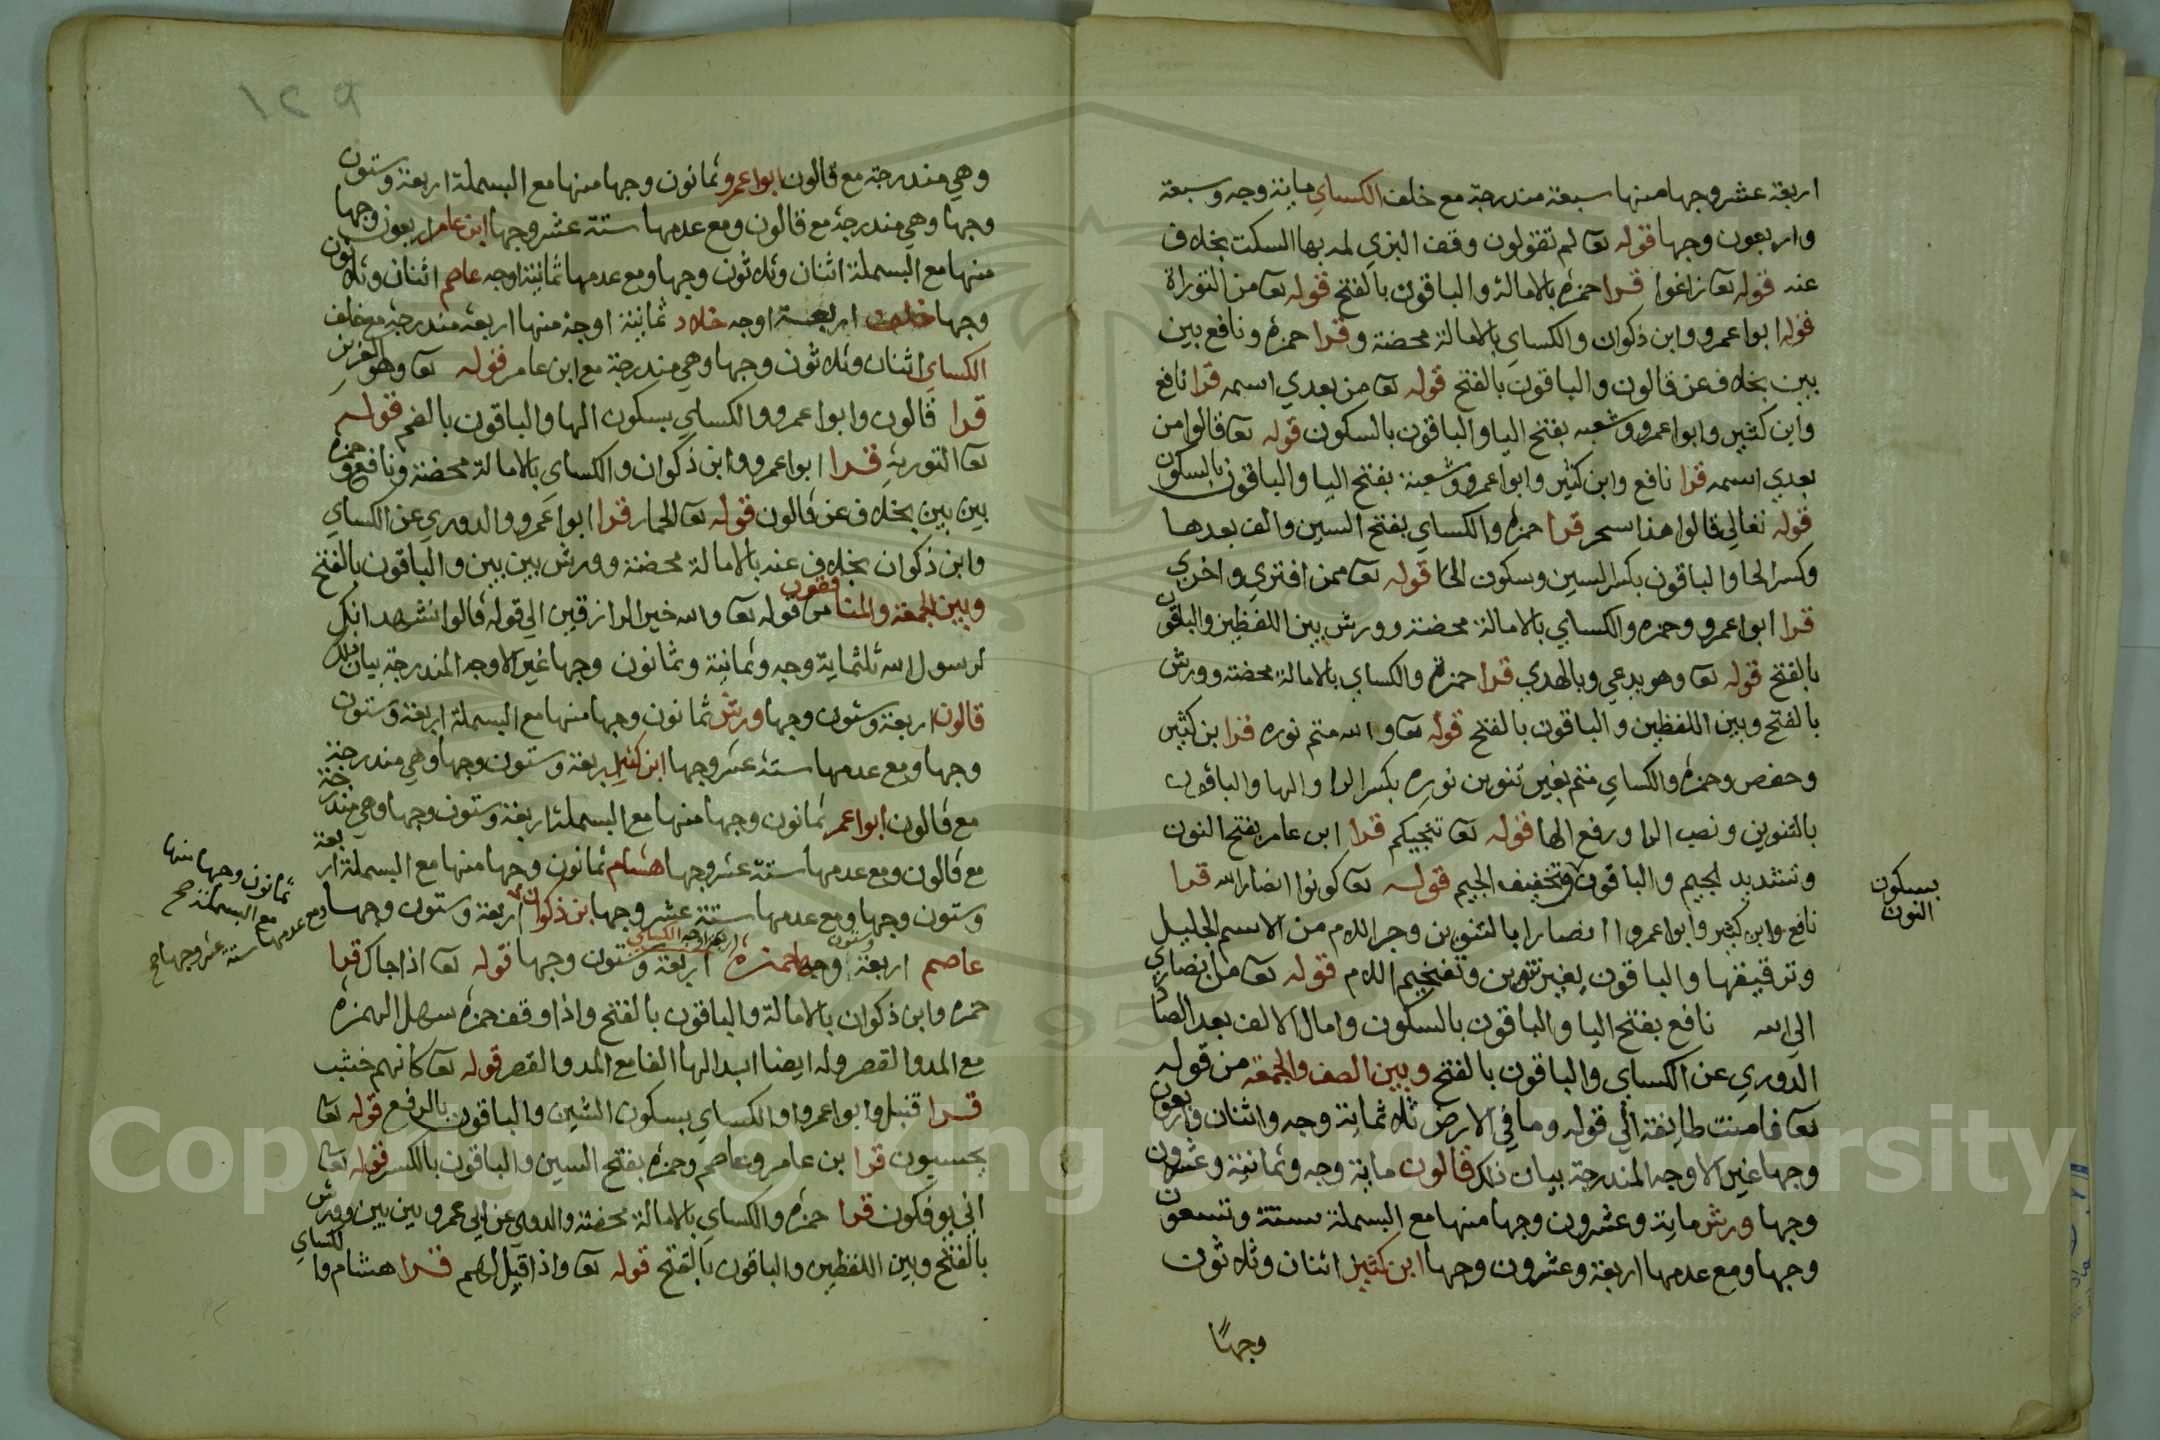 اربعة عشر وجها منها سبعة مندرجة مع خلف الكساي ماية وجه وسبعة
واربعون وجها قوله تعا لم تقولون وقف البزي لمه بها السكت بخلاف
عنه قوله تعا زاغوا قرا حمزه بالامالة والباقون بالفتح قوله تعا من التوراة
قوله ابوا عمرو وابن ذكوان والكساي بالامالة محضة وقرا حمزه ونافع بين
بين بخلاف عن قالون والباقون بالفتح قوله تعا من بعدي اسمه قرا نافع
وابن كثير وابوا عمرو وشعبه بفتح اليا والباقون بالسكون قوله تعا قالوا من
بعدي اسمه قرا نافع وابن كثير وابوا عمرو وشعبة بفتح اليا والباقون بالسكون
قوله تعالي قالوا هذا سحر قرا حمزه والكساي بفتح السين والف بعدها
وكسر الحا والباقون بكسر السين وسكون الحا قوله تعا ممن افتري واخري
قرا ابوا عمرو وحمزه والكساي بالامالة محضة وورش بين اللفظين والباقون
بالفتح قوله تعا وهو يدعي وبالهدي قرا حمزة والكساي بالامالة محضة وورش
بالفتح وبين اللفظين والباقون بالفتح قوله تعا والله متم نوره قرا بن كثير
وحفص وحمزه والكساي متم بغير تنوين نوره بكسر الرا والها والباقون
بالتنوين ونصب الرا ورفع الها قوله تعا تنجيكم قرا ابن عامر بفتح النون
وتشديد لجيم والباقون وتخفيف الجيم قوله تعا كونوا انصارا لله قرا
بسكون
النون
نافع وابن كثير وابوا عمروا انصارا بالتنوين وجر اللام من الاسم الجليل
وترقيقها والباقون بغير تنوين وتفخيم اللام قوله تعا من انصاري
الي الله نافع بفتح اليا والباقون بالسكون وامال الالف بعد الصاد
الدوري عن الكساي والباقون بالفتح وبين الصف والجمعة من قوله
تعا فامنت طايفة الي قوله وما في الارض ثلاثماية وجه واثنان واربعون
وجها غير الاوجه المندرجة بيان ذلك قالون ماية وجه وثمانية وعشرون
وجها ورش ماية وعشرون وجها منها مع البسملة ستة وتسعون
وجها ومع عدمها اربعة وعشرون وجها ابن كثير اثنان وثلاثون
وجها
وهي مندرجة مع قالون ابوا عمرو ثمانون وجها منها مع البسملة اربعة وستون
وجها وهي مندرجة مع قالون ومع عدمها ستة عشر وجها ابن عامر اربعون وجها
منها مع البسملة اثنان وثلاثون وجها ومع عدمها ثمانية اوجه عاصم اثنان وثلاثون
وجها خلف اربعة اوجه خلاد ثمانية اوجه منها اربعة مندرجة مع خلف
الكساي اثنان وثلاثون وجها وهي مندرجة مع ابن عامر قوله تعا وهو العزيز
قرا قالون وابوا عمرو والكساي بسكون الها والباقون بالضم قوله
تعا التورية قرا ابوا عمرو وابن ذكوان والكساي بالامالة محضة ونافع وحمزه
بين بين بخلاف عن قالون قوله تعا الحمار قرا ابوا عمرو والدوري عن الكساي
وابن ذكوان بخلاف عنه بالامالة محضة وورش بين بين والباقون بالفتح
وبين الجمعة والمنافقون من قوله تعا والله خير الرازقين الي قوله قالوا نشهد انك
لرسول الله ثلثماية وجه وثمانية وثمانون وجها غير الاوجه المندرجة بيان ذلك
قالون اربعة وستون وجها ورش ثمانون وجها منها مع البسملة اربعة وستون
وجها ومع عدمها ستة عشر وجها ابن كثير اربعة وستون وجها وهي مندرجة
مع قالون ابوا عمر ثمانون وجها منها مع البسملة اربعة وستون وجها وهي مندرجة
مع قالون ومع عدمها ستة عشر وجها هشام ثمانون وجها منها مع البسملة اربعة
وستون وجها ومع عدمها ستة عشر وجها بن ذكوان اربعة وستون وجها
ثمانون وجها منها
مع البسملة صح
ومع عدمها ستة عشر وجها صح
عاصم اربعة وستون وجها حمزه اربعة اوجه الكساي اربعة وستون وجها قوله تعا اذا جاك قرا
حمزه وابن ذكوان بالامالة والباقون بالفتح واذا وقف حمزه سهل الهمزه
مع المد والقصر وله ايضا ابدالها الفا مع المد والقصر قوله تعا كانهم خشب
قرا قنبل وابوا عمروا والكساي بسكون الشين والباقون بالرفع قوله تعا
يحسبون قرا بن عامر وعاصم وحمزه بفتح السين والباقون بالكسر قوله تعا
اني يوفكون قرا حمزه والكساي بالامالة محضة والدوري عن ابي عمرو بين بين وورش
بالفتح وبين اللفظين والباقون بالفتح قوله تعا واذا قيل لهم قرا هشام والكساي
Copyright © King Saud University
1957